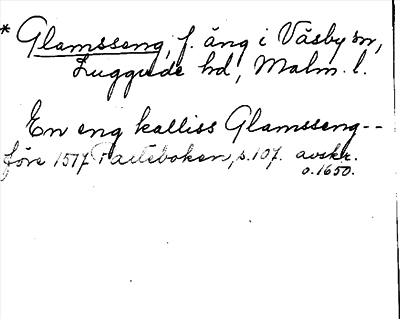 * Glamsseng, f. äng i Väsby sn,
Luggude hd, Malm. l.
En eng kalliss Glamsseng--
före 1517 s.107. avskr.
o.1650.